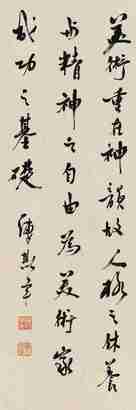 美術重在神韻故人格之休養
与精神之自由為美術家
成功之基礎
傅斯年